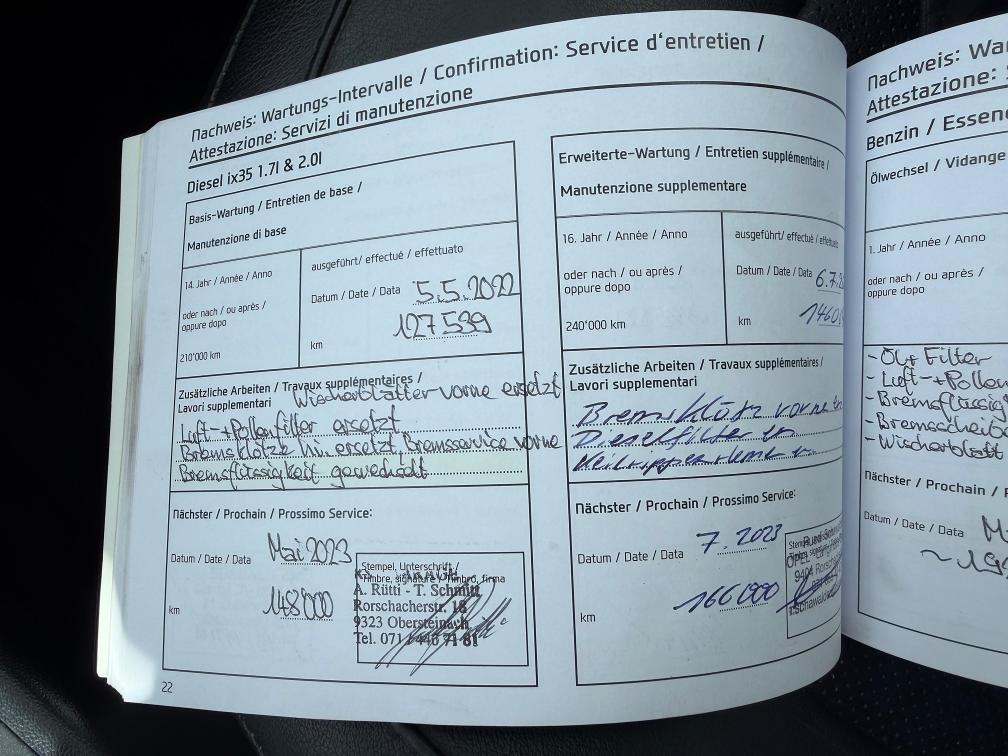 Nachweis: Wartungs-Intervalle / Confirmation: Service d'entretien /
Attestazione: Servizi di manutenzione
Diesel ix35 1.7l & 2.0l
Basis-Wartung / Entretien de base /
Manutenzione di base
14. Jahr / Année / Anno
oder nach / ou après /
oppure dopo
210'000 km
ausgeführt/ effectué / effettuato
Datum / Date / Data 5.5.2022
127539
km
Zusätzliche Arbeiten / Travaux supplémentaires /
Lavori supplementari Wischerblätter vorne ersetzt
Luft-+Pollenfilter ersetzt
Bremsklötze hi. ersetzt, Bremsservice vorne
Bremsflüssigkeit
Nächster / Prochain / Prossimo Service:
Datum / Date / Data Mai 2023
km 148'000
Stempel, Unterschrift /
Timbre, signature / Timbro, firma
A. Rütti - T. Schmitt
Rorschacherstr. 18
9323 Obersteinach
Tel. 071 / 446 71 81
22
Erweiterte-Wartung / Entretien supplémentaire /
Manutenzione supplementare
16. Jahr / Année / Anno
oder nach / ou après /
oppure dopo
240'000 km
ausgeführt/ effectué /
Datum / Date / Data 6.7.
km
Zusätzliche Arbeiten / Travaux supplémentaires /
Lavori supplementari
Bremsklötz vorne
Dieselfilter
Nächster / Prochain / Prossimo Service:
Datum / Date / Data 7.2023
km 166'000
OPEL
Nachweis:
Attestazione:
Benzin /
Ölwechsel / Vidange
1. Jahr / Année / Anno
oder nach / ou après /
oppure dopo
-Öl+Filter
-Luft-+Pollen
-Wischerblatt
Nächster / Prochain /
Datum / Date / Data